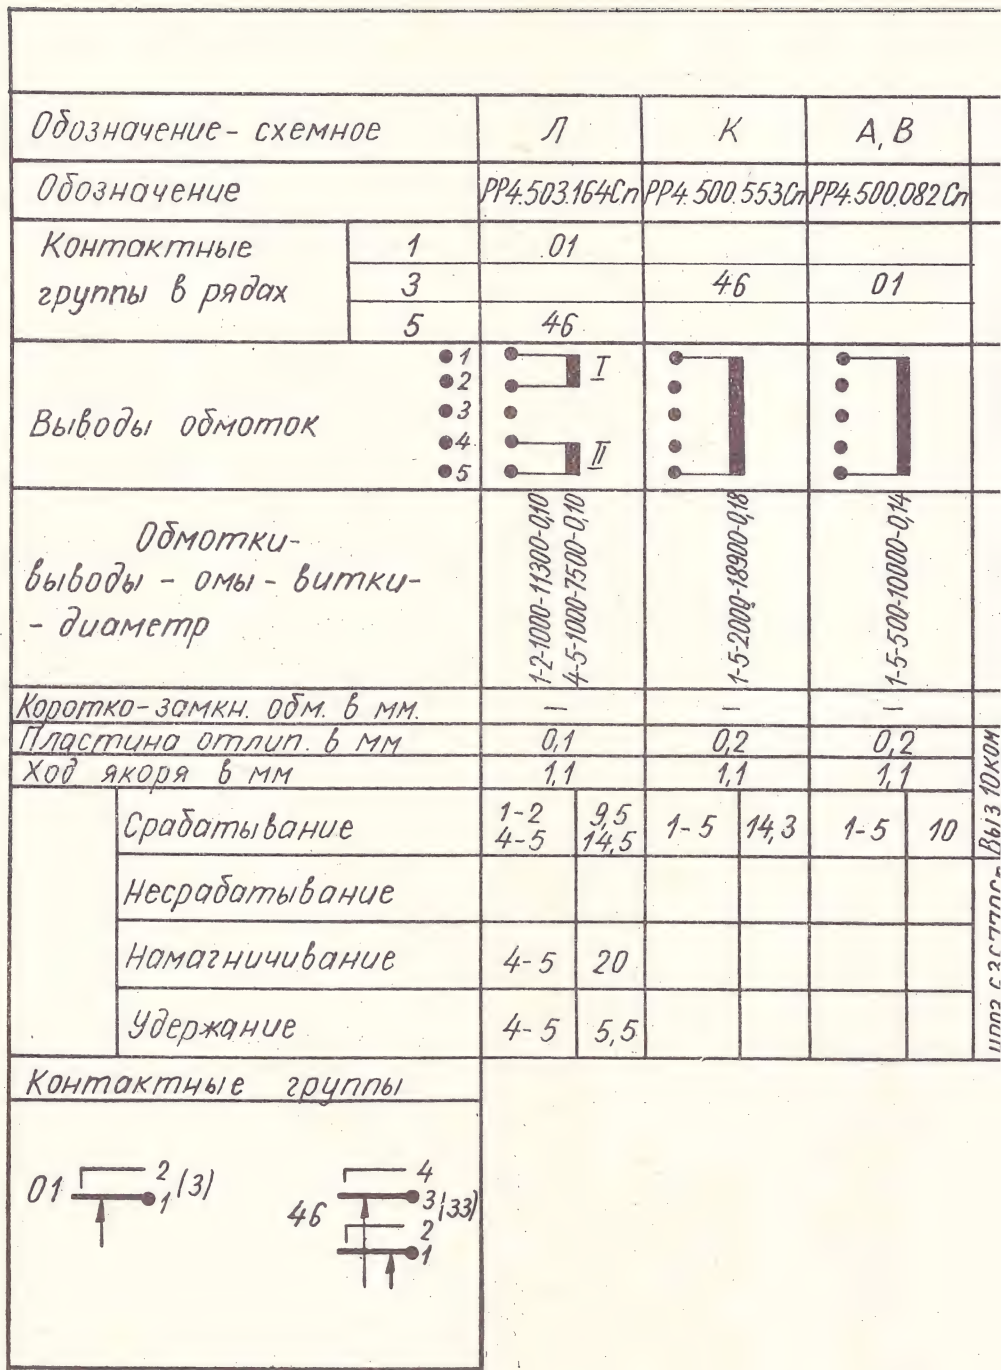 Обозначение - схемное Л К А, В
Обозначение РР4.503.164Сп РР4.500.553Сп РР4.500.082Сп
Контактные группы в рядах
1 01
3 46 01
5 46
Выводы обмоток
1
2
3
4
5
I
II
Обмотки-
выводы - омы - витки-
- диаметр
1-2-1000-11300-0,10
4-5-1000-7500-0,10
1-5-2000-18900-0,18
1-5-500-10000-0,14
Коротко-замкн. обм. в мм. — — —
Пластина отлип. в мм 0,1 0,2 0,2
Ход якоря в мм 1,1 1,1 1,1
Срабатывание 1-2 9,5 1-5 14,3 1-5 10
4-5 14,5
Несрабатывание
Намагничивание 4-5 20
Удержание 4-5 5,5
Выз 10ком
Контактные группы
01 2 1 (3)
46 4 3 (33) 2 1